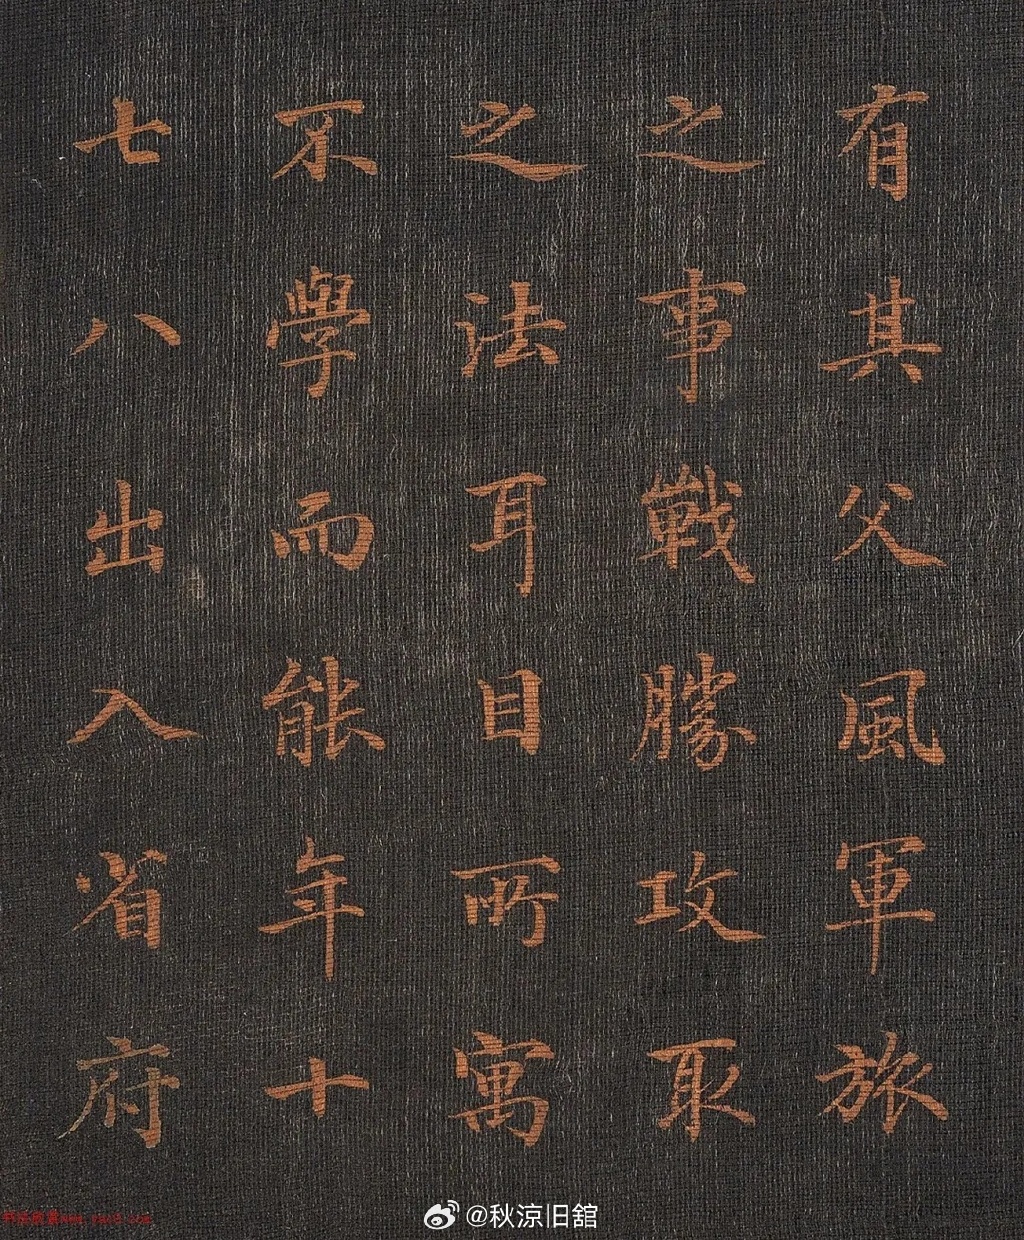 有其父風軍旅
之事戰勝攻取
之法耳目所寓
不學而能年十
七八出入省府
@秋涼旧舘